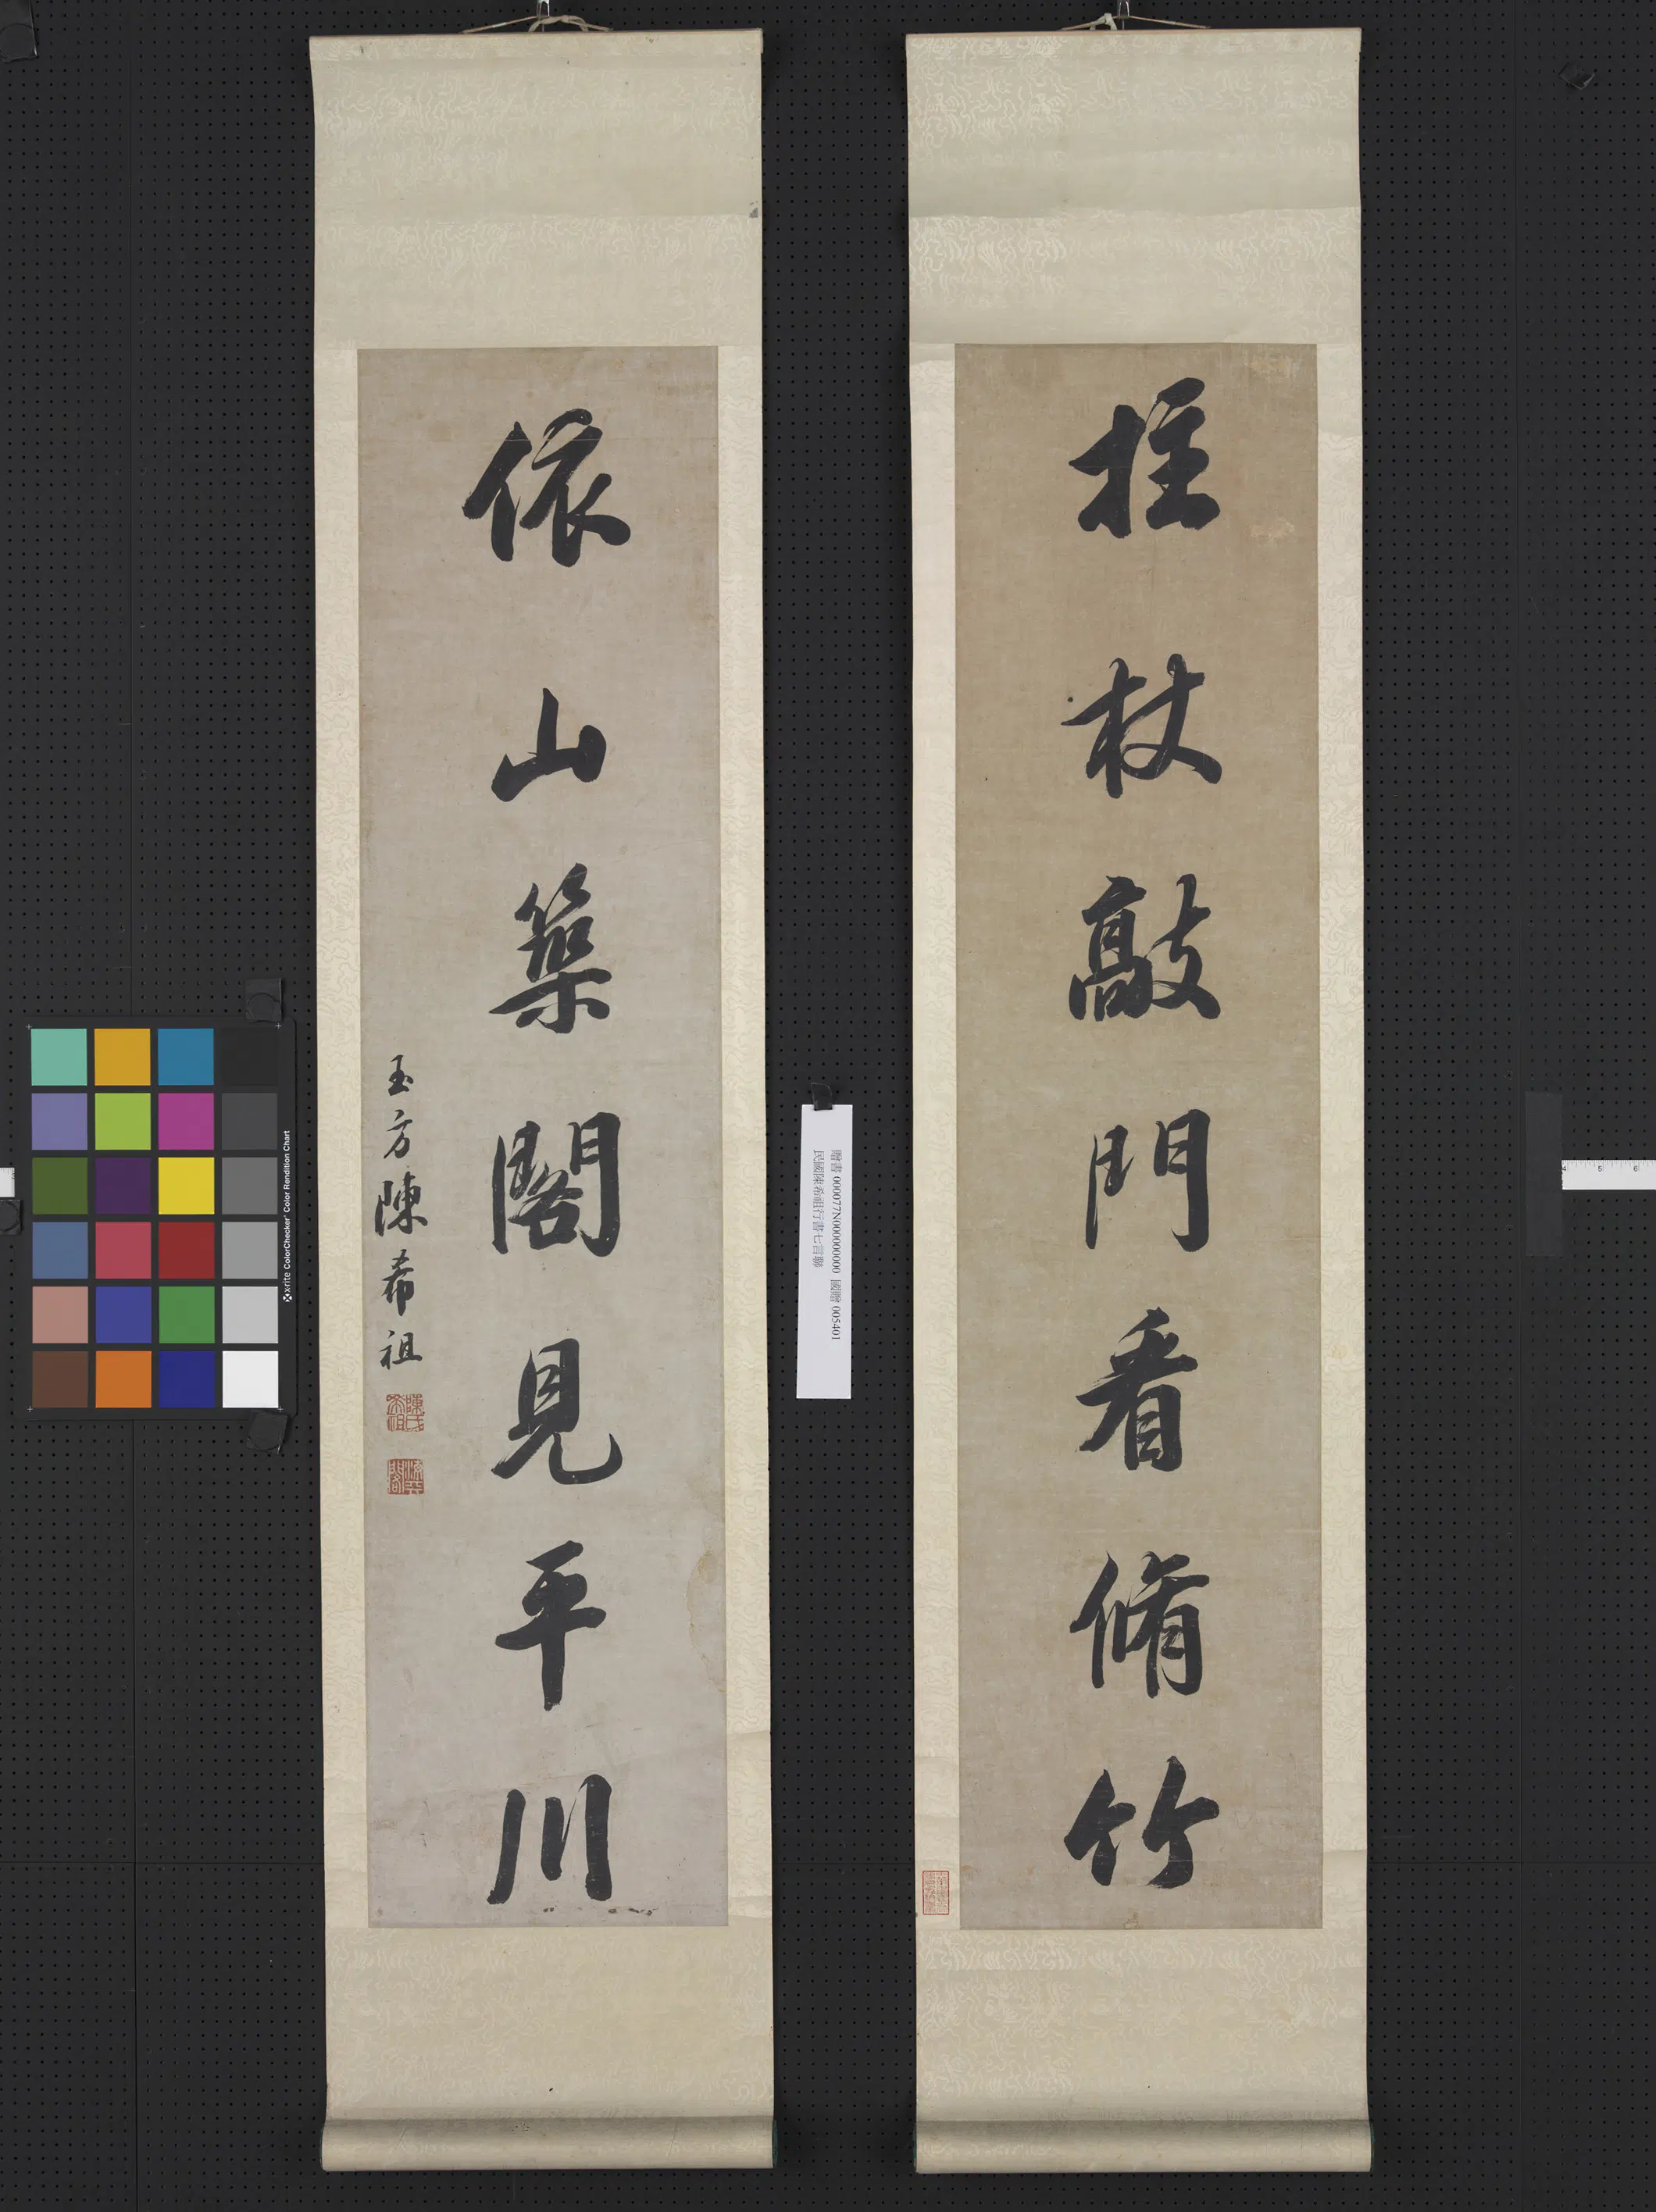 拄杖敲門看脩竹
依山築閣見平川
玉方陳希祖
贈書 000077N000000000 國贈 005401
民國陳希祖行書七言聯
x-rite ColorChecker Color Rendition Chart
4 5 6